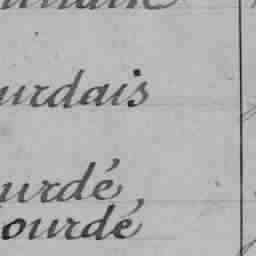 urdais
urdé
ourdé